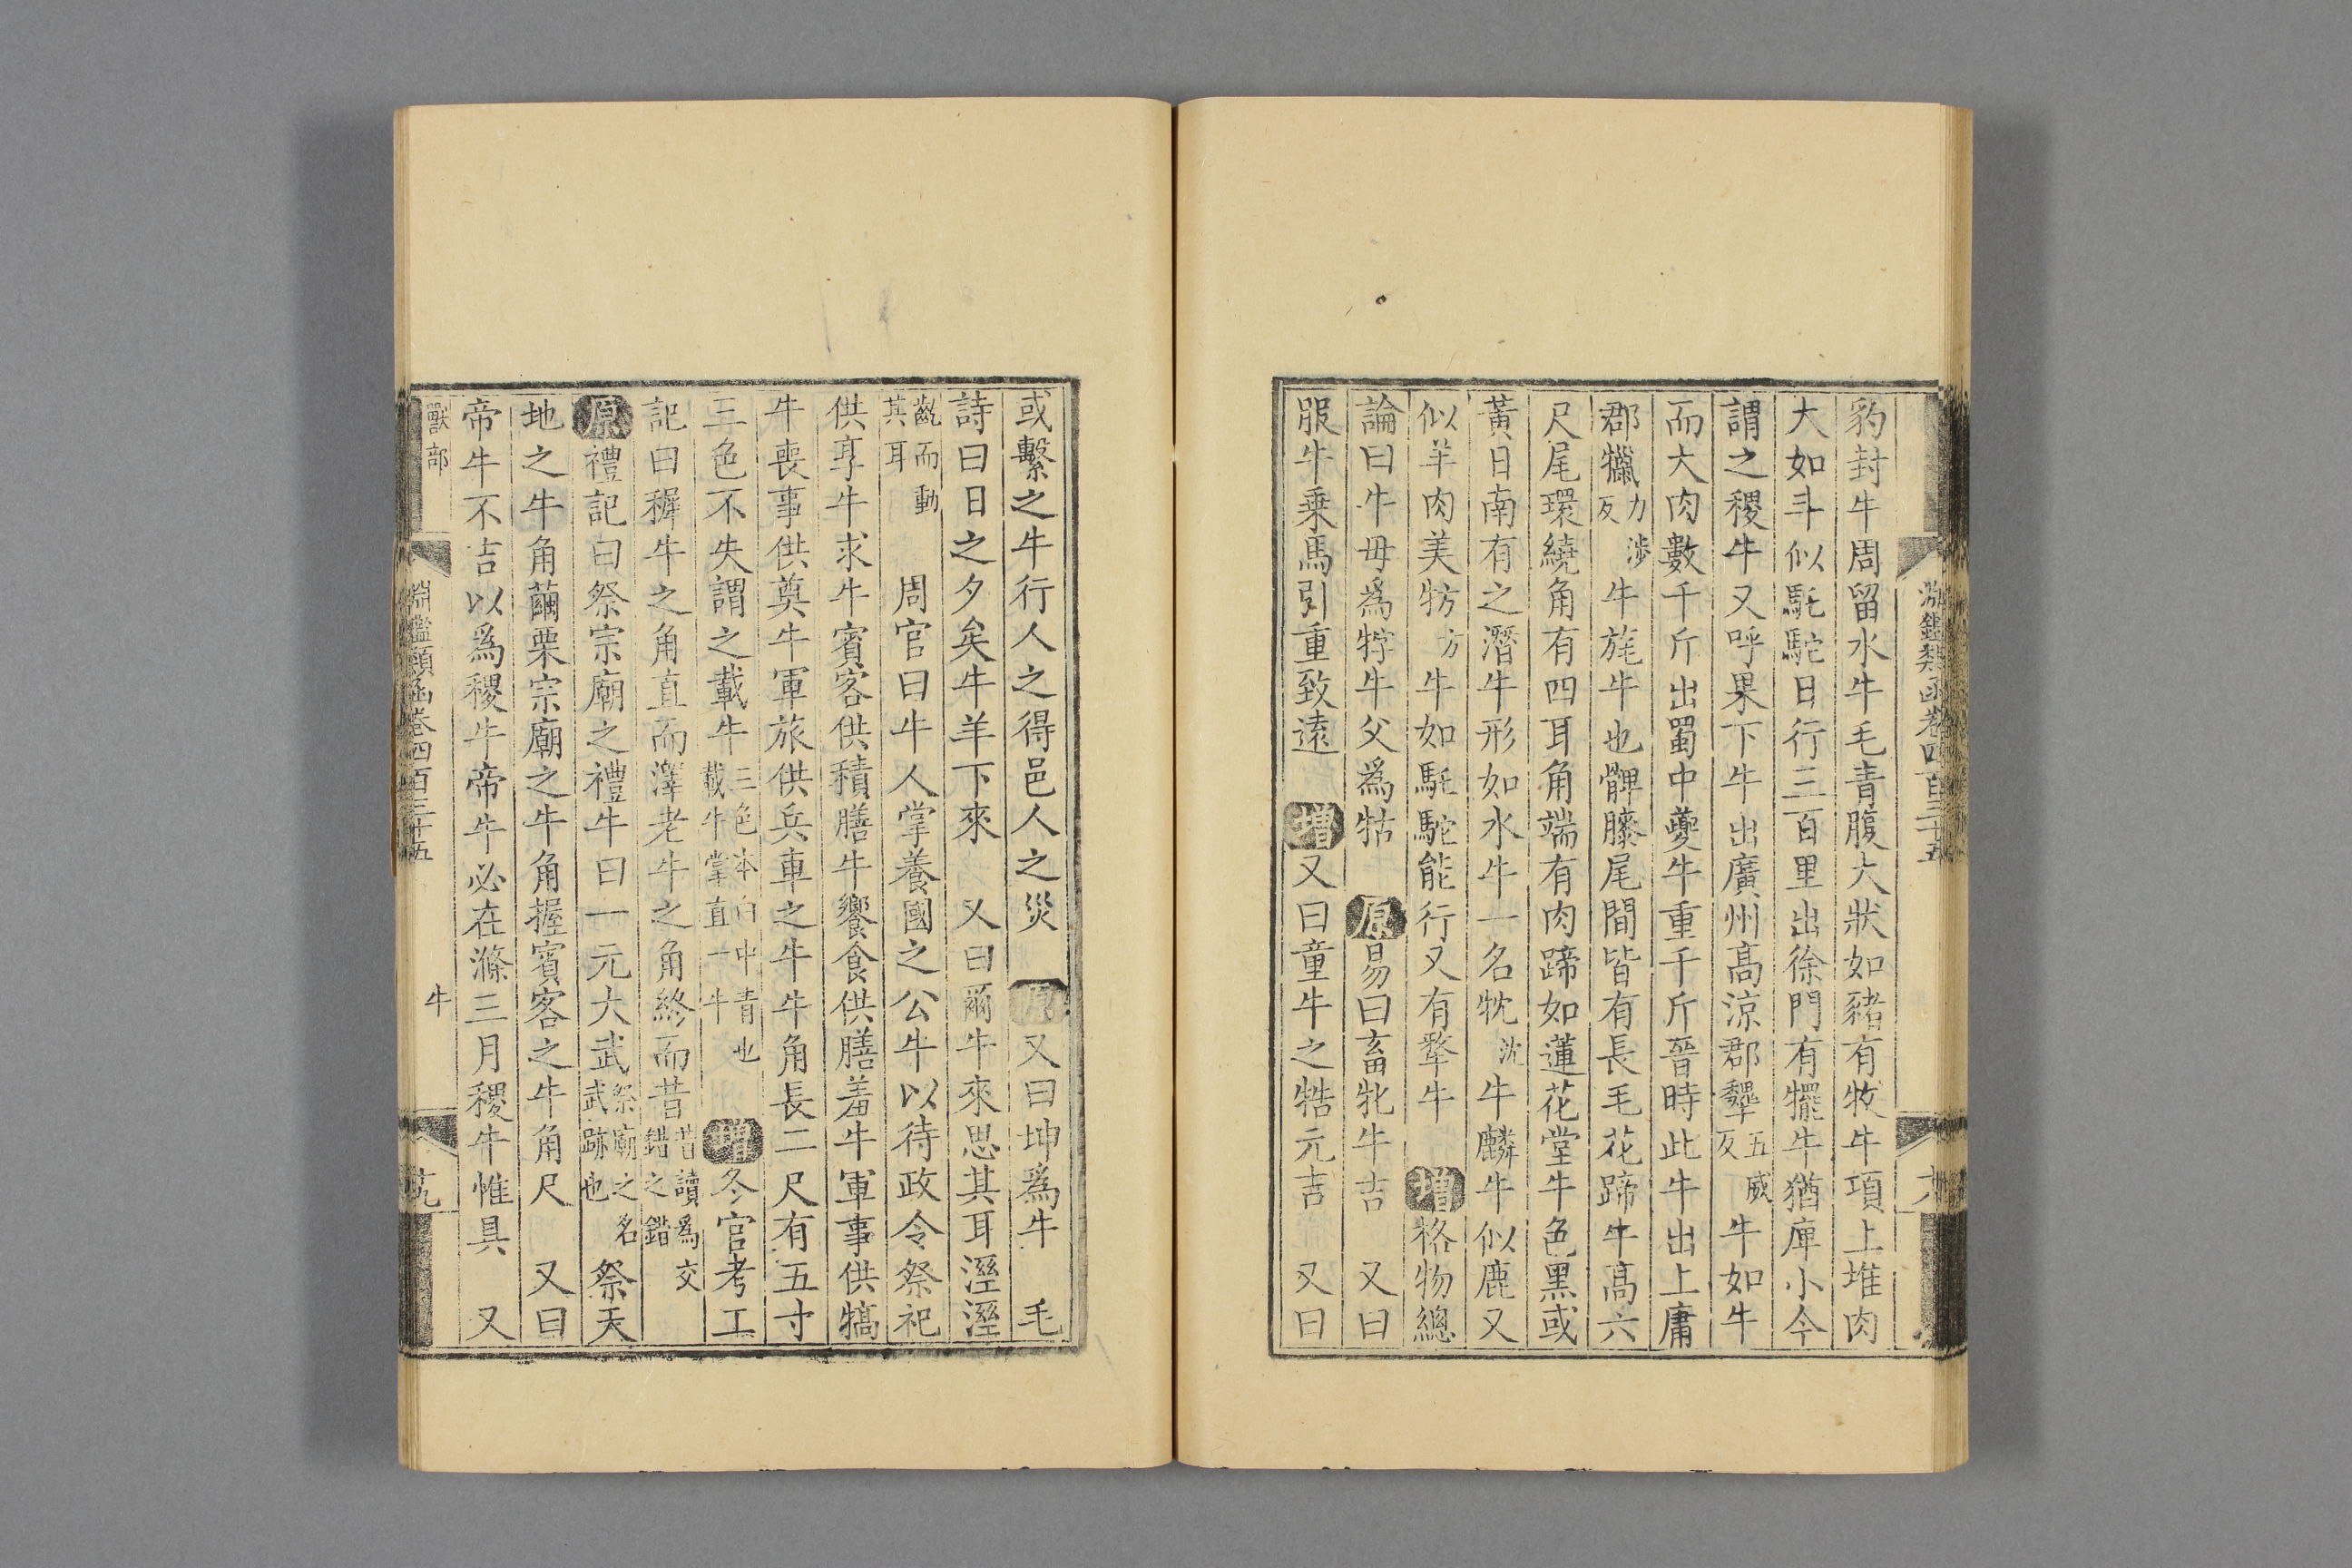 淵鑑類函卷四百三十五
豹封牛周留水牛毛青腹大狀如豬有牧牛項上堆肉
大如斗似駞駝日行三百里出徐門有犤牛猶庳小今
謂之稷牛又呼果下牛出廣州高涼郡犩五威反牛如牛
而大肉數千斤出蜀中夔牛重千斤晉時此牛出上庸
郡犣力涉反牛旄牛也髀膝尾間皆有長毛花蹄牛高六
尺尾環繞角有四耳角端有肉蹄如蓮花堂牛色黑或
黃日南有之潛牛形如水牛一名牰沈牛麟牛似鹿又
似羊肉美牥方牛如駞駝能行又有犂牛 增格物總
論曰牛母為牸牛父為牯 原易曰畜牝牛吉 又曰
服牛乘馬引重致遠 增又曰童牛之牿元吉 又曰
或繫之牛行人之得邑人之災 原又曰坤為牛 毛
詩曰日之夕矣牛羊下來 又曰爾牛來思其耳溼溼
齝而動其耳 周官曰牛人掌養國之公牛以待政令祭祀
供享牛求牛賓客供積膳牛饗食供膳羞牛軍事供犒
牛喪事供奠牛軍旅供兵車之牛牛角長二尺有五寸
三色不失謂之載牛三色本白中青也載牛掌直一牛 增冬官考工
記曰穉牛之角直而澤老牛之角終而昔昔讀為交錯之錯
原禮記曰祭宗廟之禮牛曰一元大武祭廟之名武跡也 祭天
地之牛角繭栗宗廟之牛角握賓客之牛角尺 又曰
帝牛不吉以為稷牛帝牛必在滌三月稷牛惟具 又
獸部 淵鑑類函卷四百三十五 牛